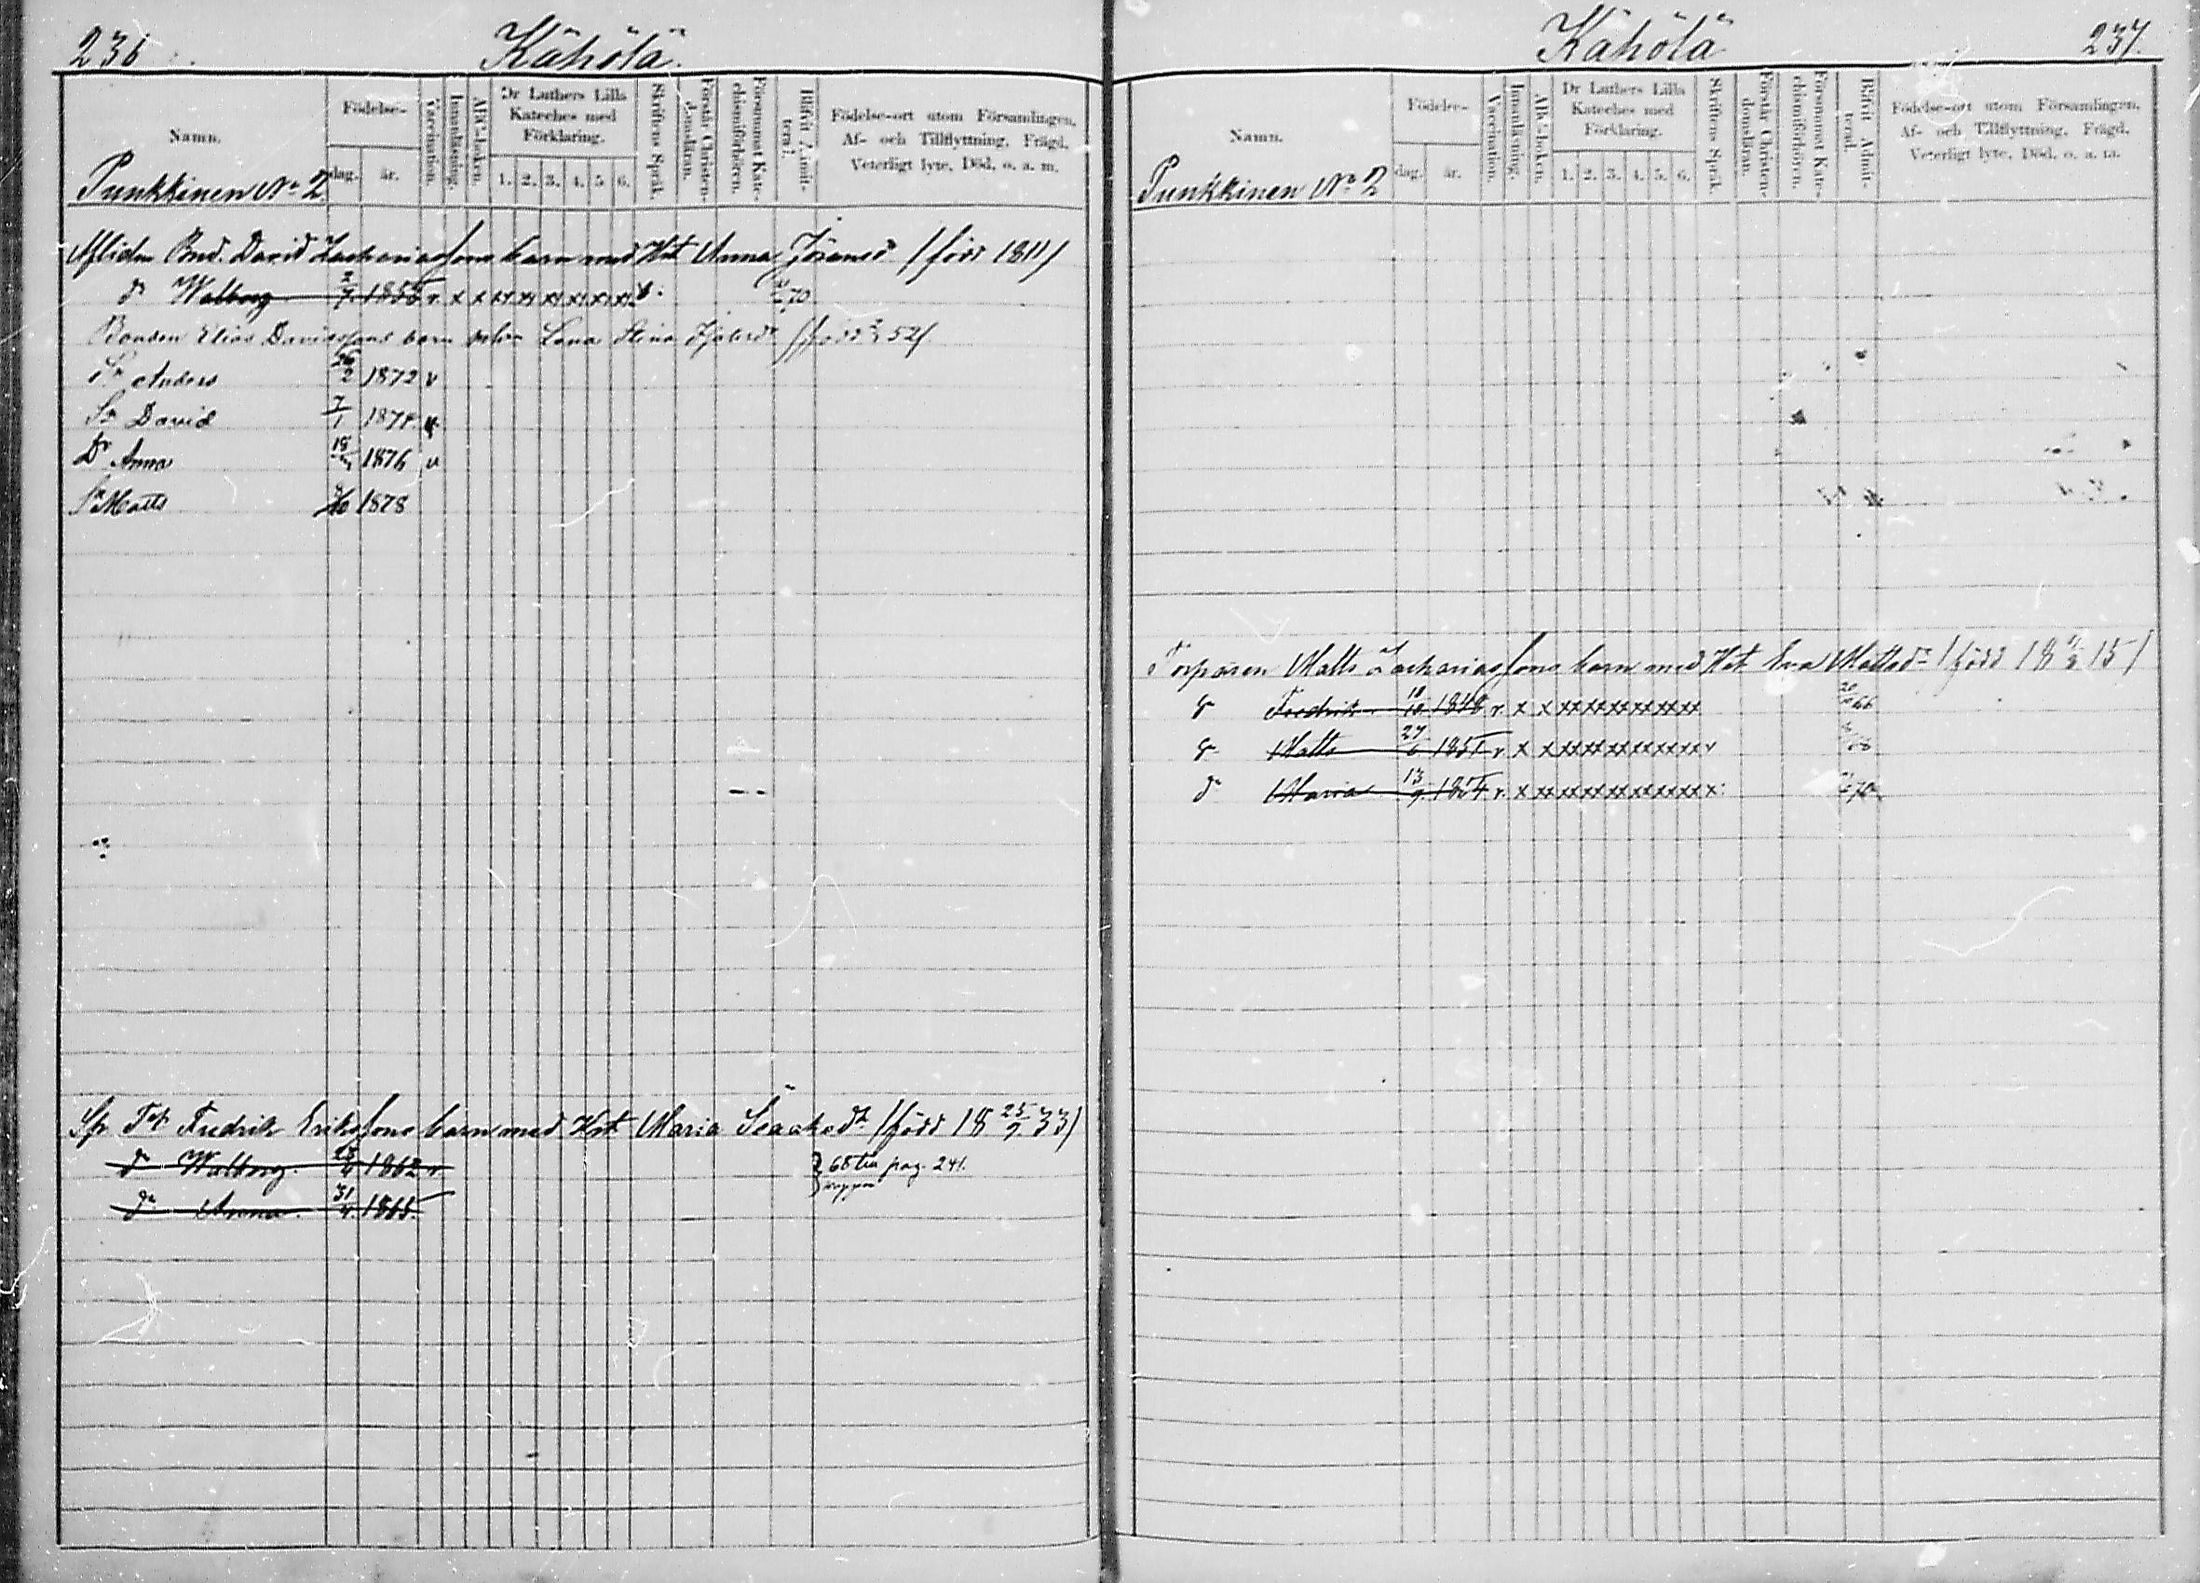 236
Kähölä.
Namn.
Födelse-
dag.
år.
Vaccination.
Innanläsning.
Abc-boken.
Dr Luthers Lilla Kateches med Förklaring.
1. 2. 3. 4. 5. 6.
Skriftens Språk.
Förstår Christendomsläran.
Försummat Katechismiförhören.
Blifvit Admitterad.
Födelse-ort utom Församlingen, Af- och Tillflyttning, Frägd, Veterligt lyte, Död, o. a. m.
Punkkinen No 2
Afliden Bnd. David Zachariassons barn med Hst Anna Jöransd (född 1811)
dr Walborg 2/7 1855 v x x x x x x x x 70
Bonden Elias Davidssons barn Lena Stina (född 52)
Sn Anders 26/2 1872 v
Sn David 7/1 1874 v
Dr Anna 1876 v
Sn Matts 1878
Fredrik Erikssons barn med Hst Maria Isaaksdr (född 18 25/9 33)
dr Walborg. 1862 v
68 till pag. 241.
dr Anna. 31 1865.
Kähölä
237.
Namn.
Födelse-
dag.
år.
Vaccination.
Innanläsning.
Abc-boken.
Dr Luthers Lilla Kateches med Förklaring.
1. 2. 3. 4. 5. 6.
Skriftens Språk.
Förstår Christendomsläran.
Försummat Katechismiförhören.
Blifvit Admitterad.
Födelse-ort utom Församlingen, Af- och Tillflyttning, Frägd, Veterligt lyte, Död, o. a. m.
Punkkinen No 2
Torparen Matts Zachariassons barn med Hst Eva Mattsdr (född 18 15)
Fredrik 18/10 1848 v. x x xx xx xx xx xx xx 66
Matts 27/6 1851 v x x xx xx xx xx xx xx v 68
dr Maria 13/9 1854 v. x xx xx xx xx xx xx xx x 70